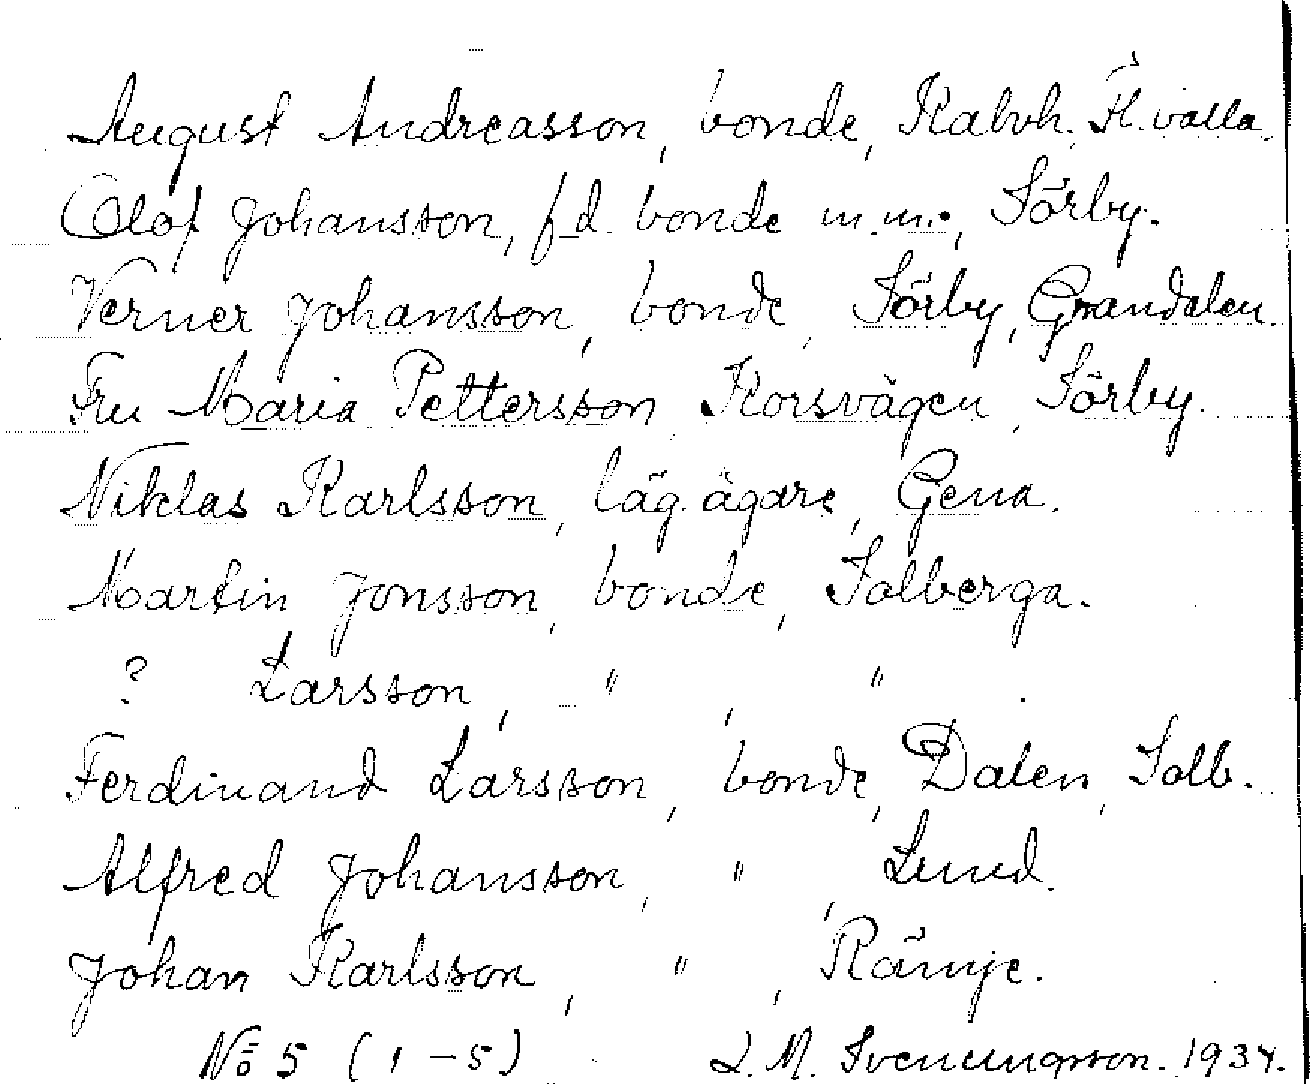 August Andreasson, bonde, Kabvh. Fl. valla.
Olof Johansson, f.d. bonde m.m., Sörby.
Verner Johansson, bonde, Sörby, Grandalen.
Fru Maria Pettersson, Korsvägen, Sörby.
Niklas Karlsson, läg. ägare, Gena.
Martin Jonsson, bonde, Solberga.
? Larsson, " , " .
Ferdinand Larsson, bonde, Dalen, Solb.
Alfred Johansson, " , Lund.
Johan Karlsson, " , Rämje.
No 5 (1-5) L. M. Svenungsson. 1934.